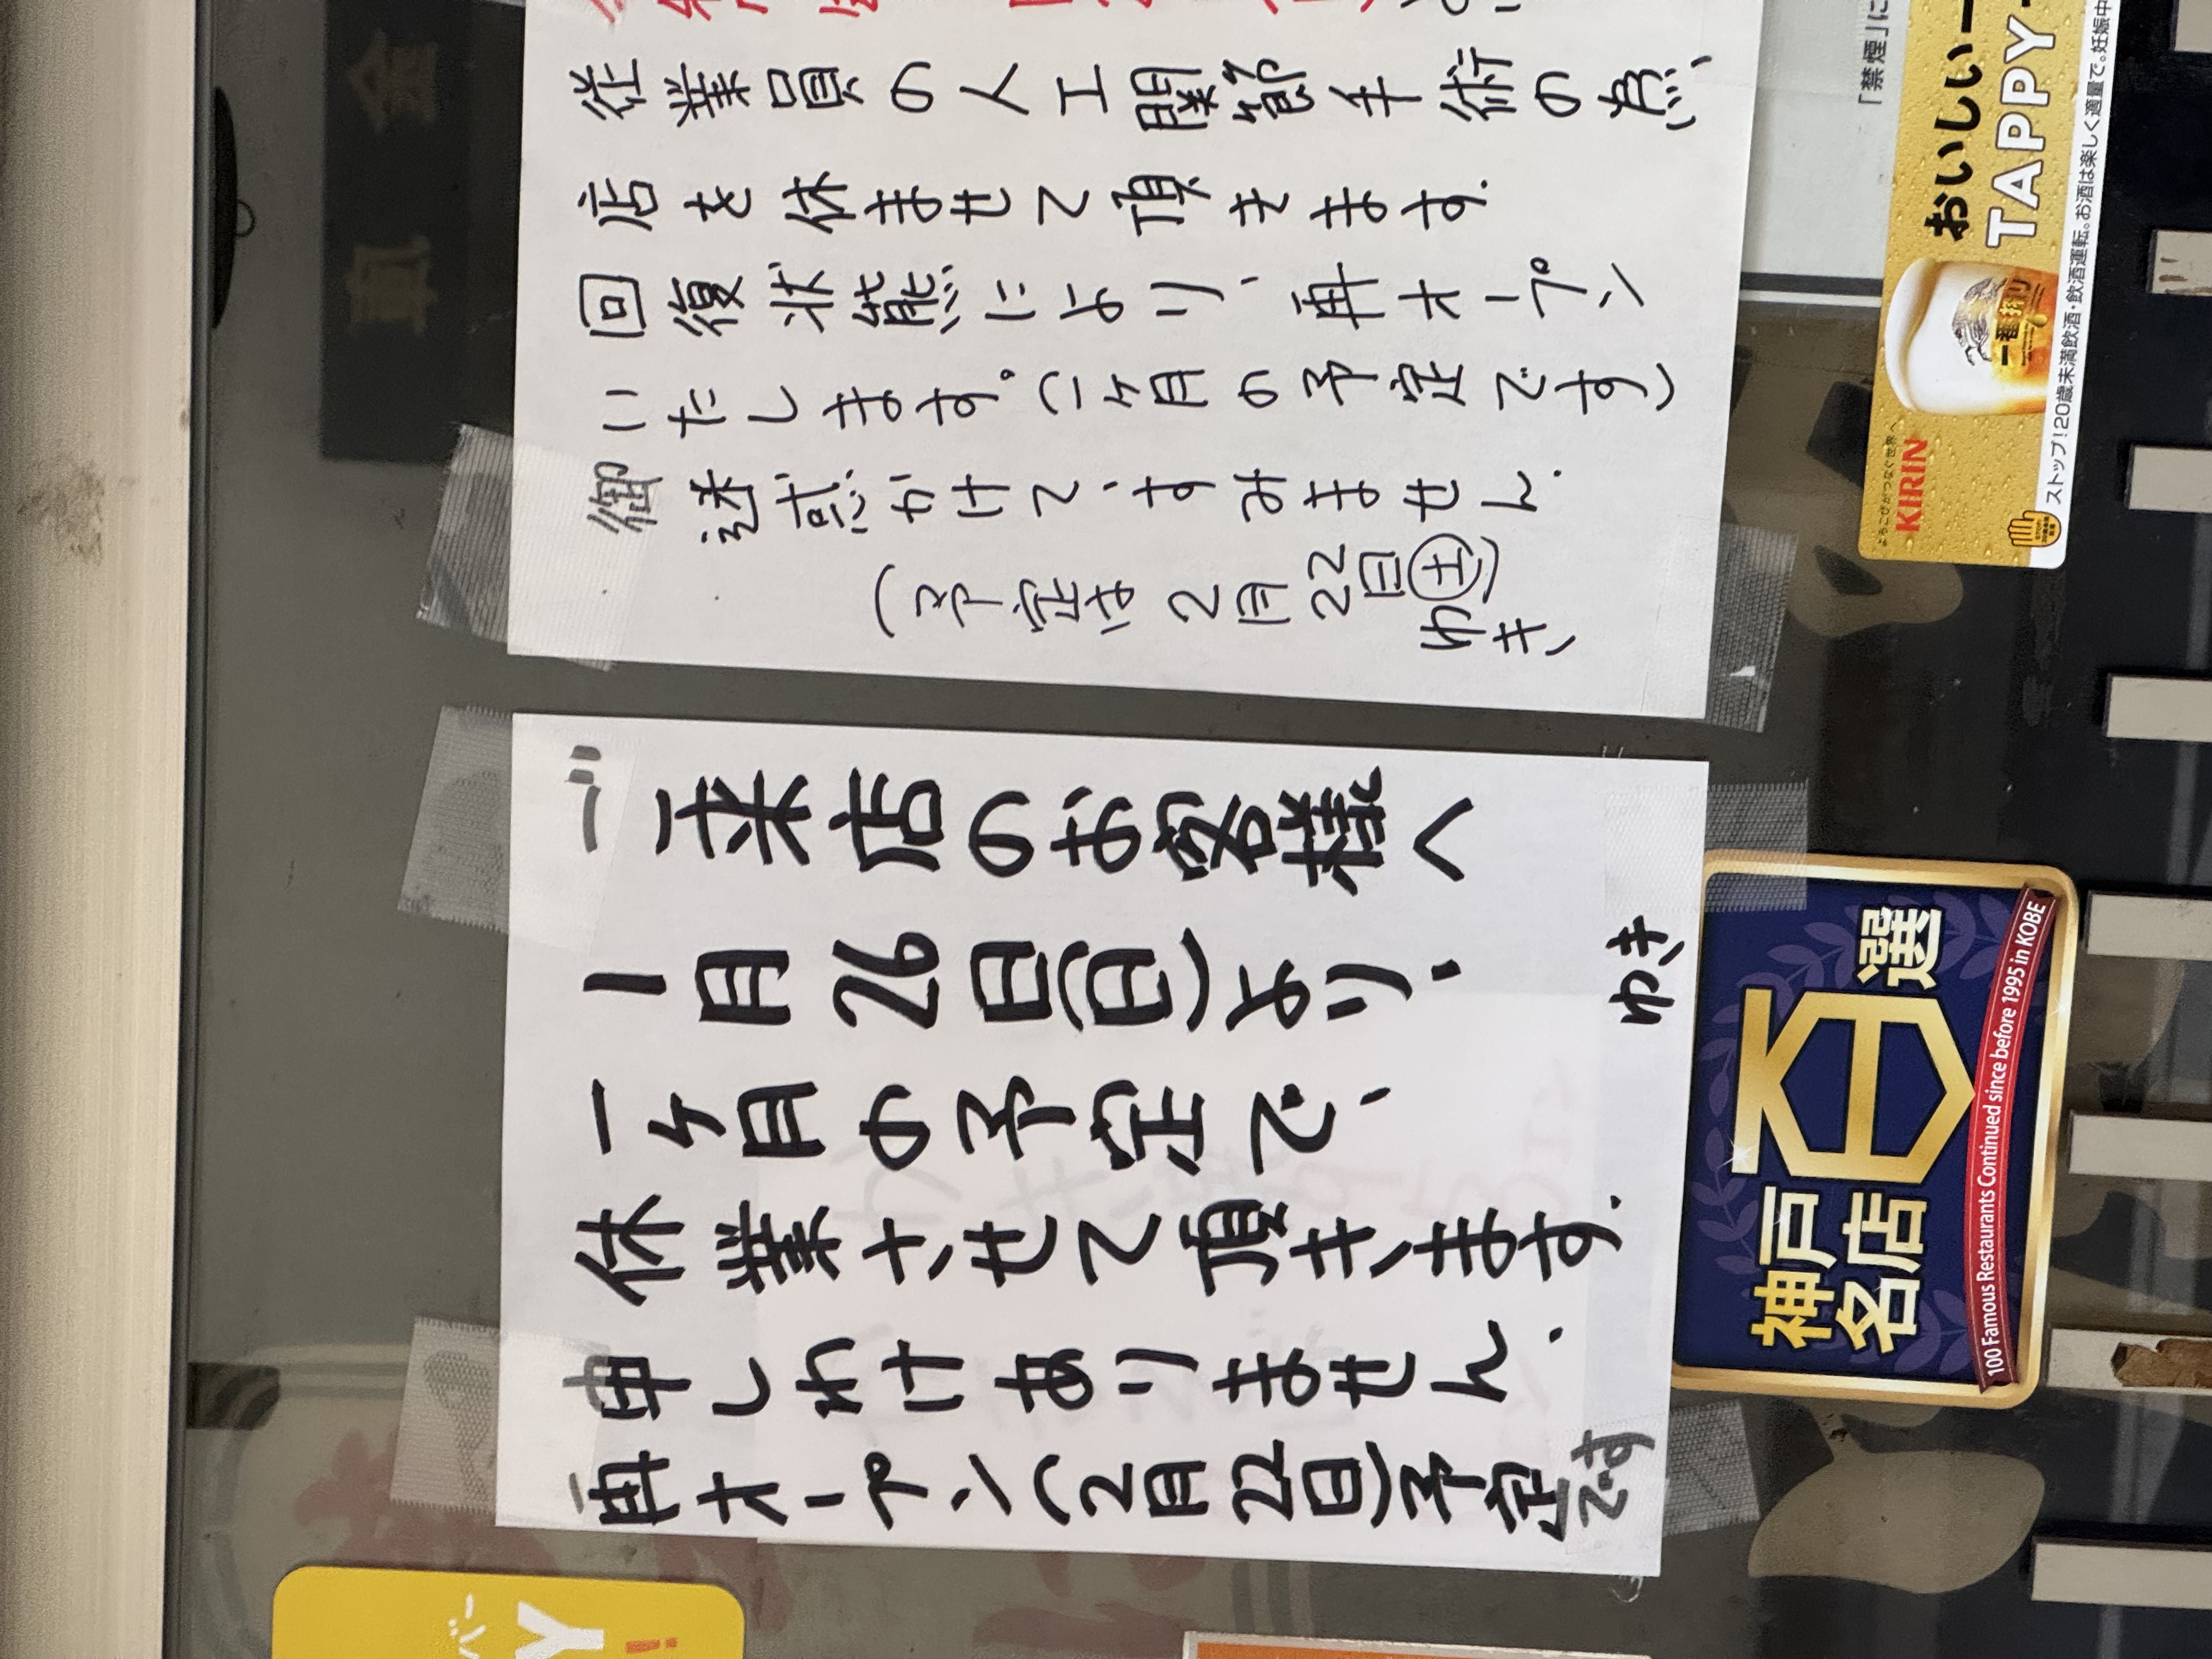 従業員の人工関節手術の為、
店を休ませて頂きます.
回復状態により、再オープン
いたします。(一ヶ月の予定です)
御迷惑かけて、すみません.
(予定は2月22日㊏)
ゆき
ご来店のお客様へ
1月26日(日)より、
一ヶ月の予定で、
休業させて頂きます.
申しわけありません.
再オープン(2月22日)予定です
ゆき
「禁煙」に
おいしい
TAPPY
一番搾り
よろこびがつなぐ世界へ
KIRIN
ストップ!20歳未満飲酒・飲酒運転。お酒は楽しく適量で。妊娠中
神戸
名店
百
選
100 Famous Restaurants Continued since before 1995 in KOBE